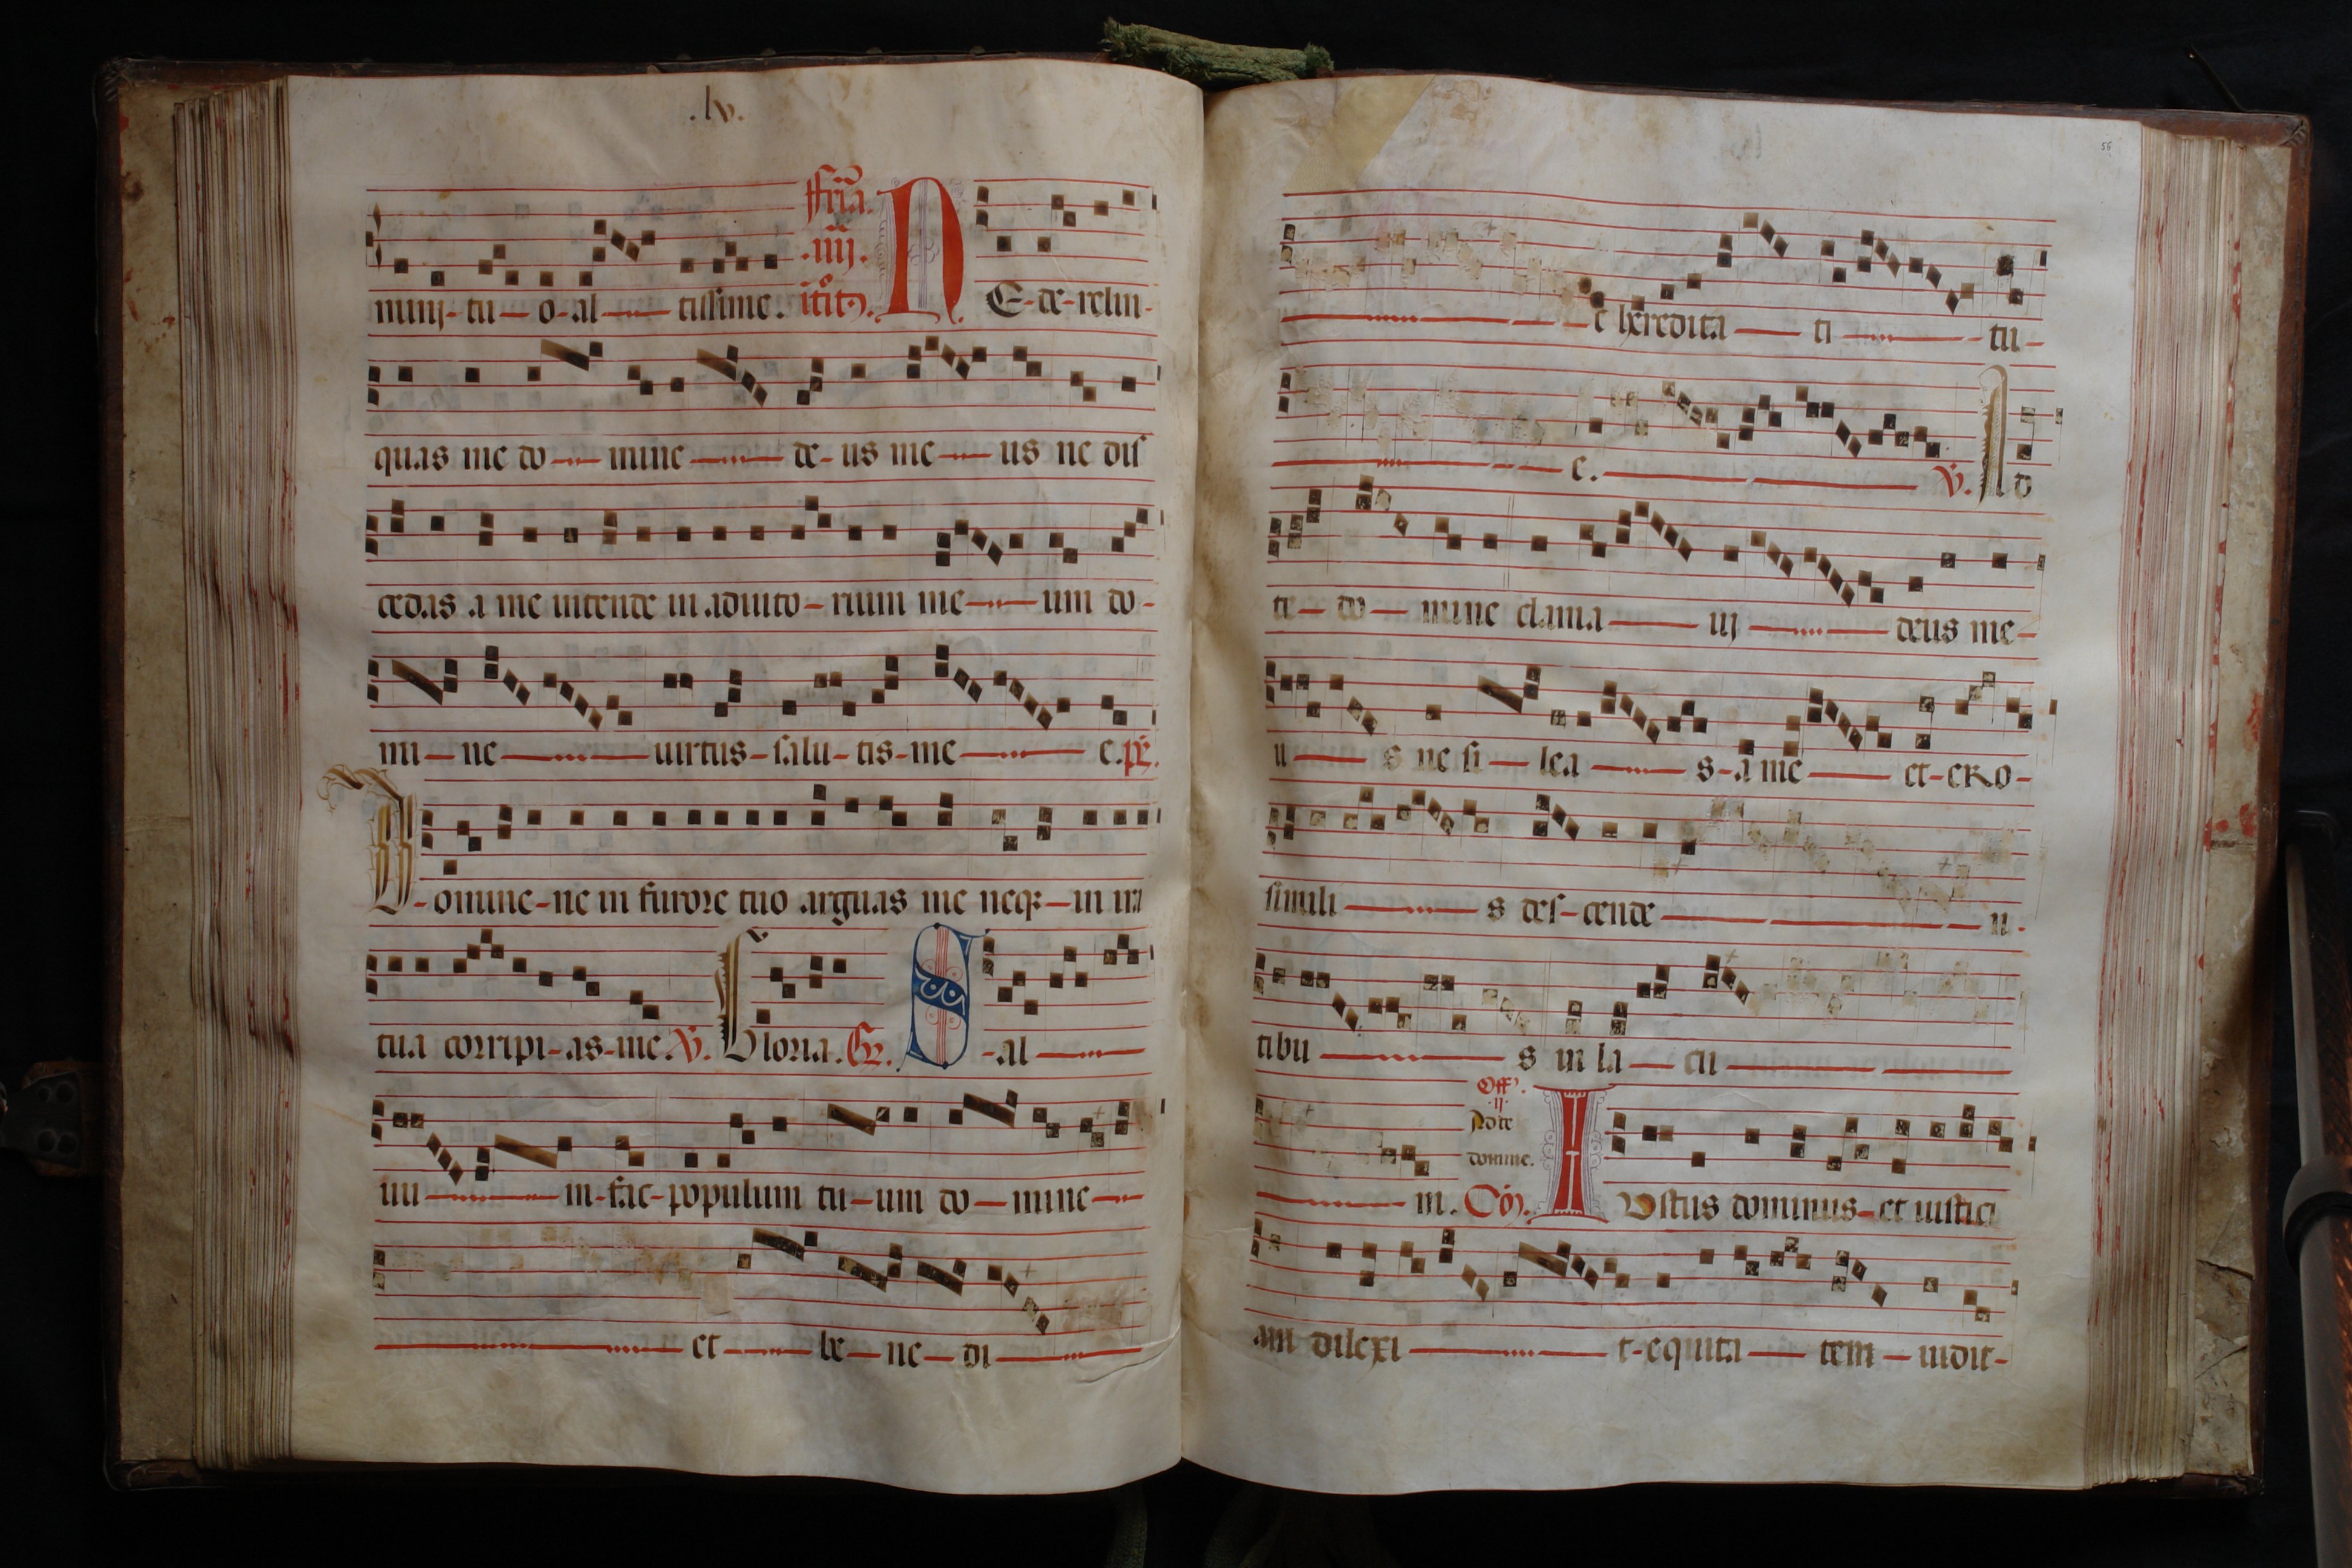 .lv.
mini-tu-o-al-tissime. ffria. .iiij. itit9. NE-de-relin-
quas me do-mine-de-us me-us ne dis
cedas a me intende in adiuto-rium me-um do-
mi-ne-uirtus-salu-tis-me-e.ps.
D-omine-ne in furore tuo arguas me neq3-in ira
tua corripi-as-me V. Gloria. Gr. S-al-
uu-in-fac-populum tu-um do-mine-
et-be-ne-di-
56
e heredita-ti-tu-
e. V. Ad
te-do-mine clama-uj-deus me-
u-s ne si-lea-s-a me-et-ero-
simili-s des-cende-n.
tibu-s in la-cu-
Off. .ij. Ad te domine.
m. Co. Iustus dominus-et iustici
am dilexi-t-equita-tem-uidit-